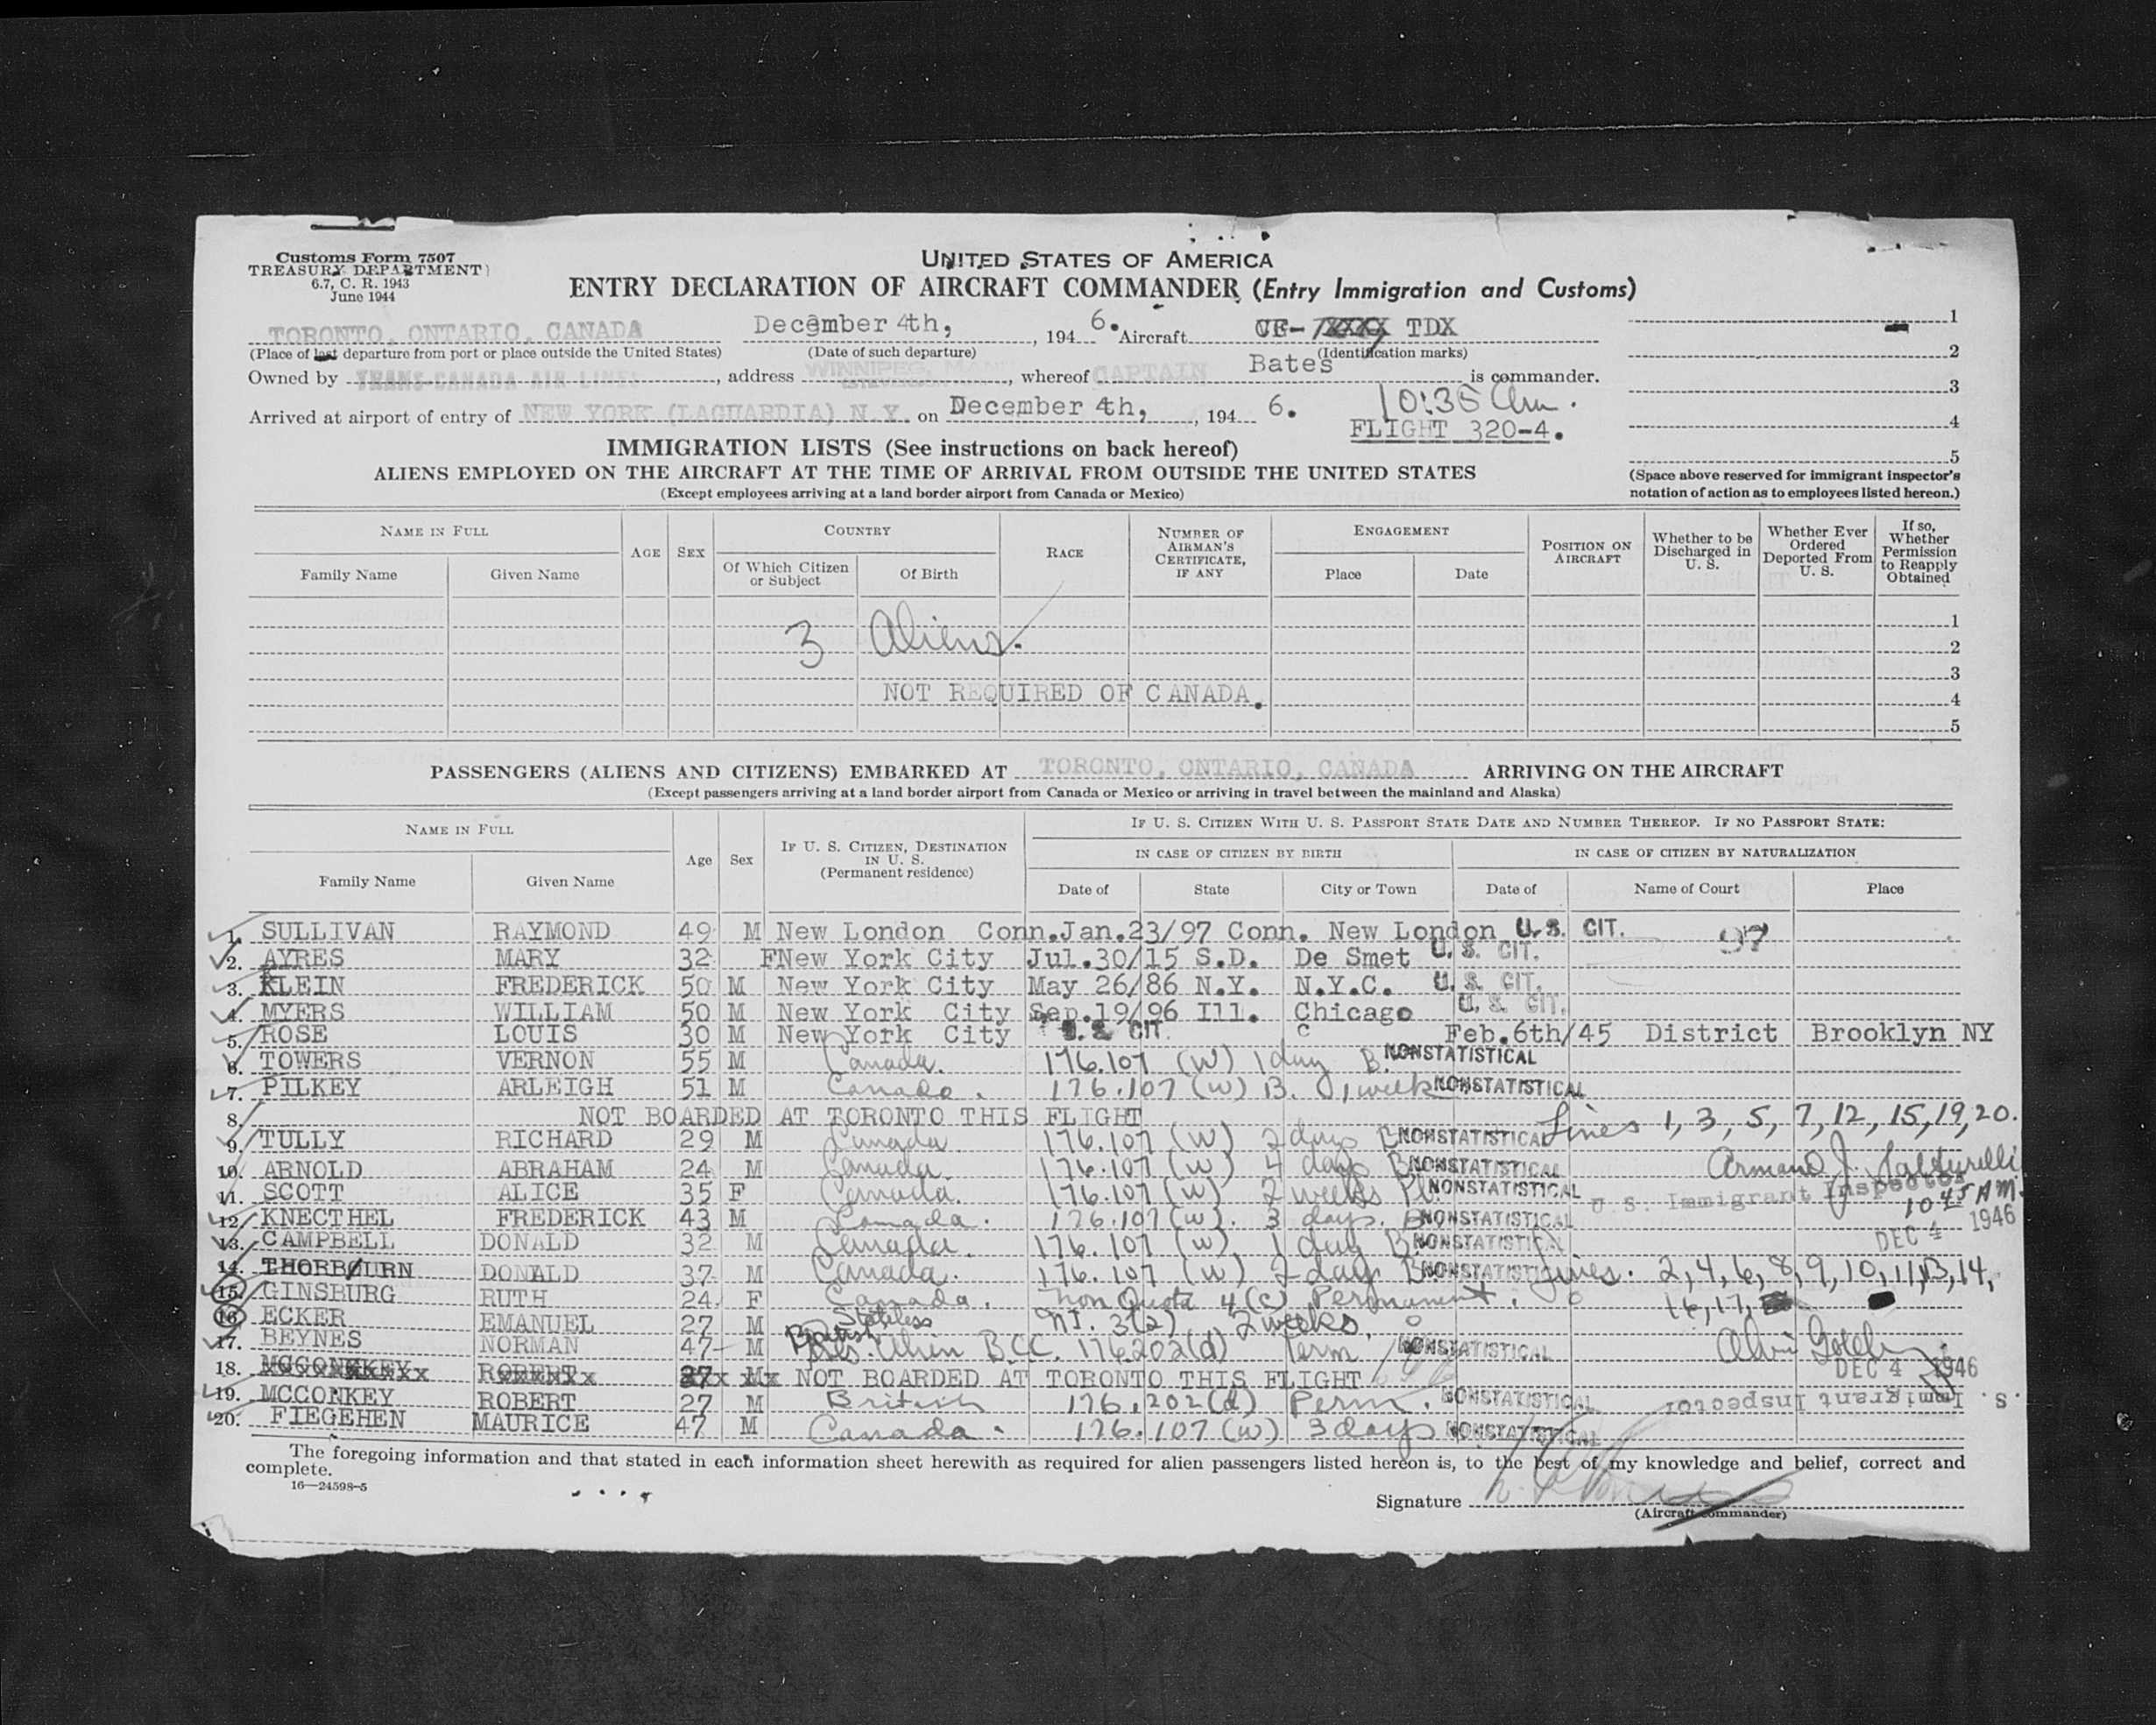 Customs Form 7507
TREASURY DEPARTMENT
6.7, C. R. 1943
June 1944
UNITED STATES OF AMERICA
ENTRY DECLARATION OF AIRCRAFT COMMANDER (Entry Immigration and Customs)
TORONTO, ONTARIO, CANADA December 4th, , 194 6. Aircraft CF- TDX 1
(Place of last departure from port or place outside the United States) (Date of such departure) (Identification marks)
2
Owned by TRANS-CANADA AIR LINES , address WINNIPEG, MAN , whereof CAPTAIN Bates is commander. 3
Arrived at airport of entry of NEW YORK (LAGUARDIA) N.Y. on December 4th, , 194 6. 10:35 Am. 4
FLIGHT 320-4. 5
IMMIGRATION LISTS (See instructions on back hereof)
ALIENS EMPLOYED ON THE AIRCRAFT AT THE TIME OF ARRIVAL FROM OUTSIDE THE UNITED STATES
(Except employees arriving at a land border airport from Canada or Mexico)
(Space above reserved for immigrant inspector's notation of action as to employees listed hereon.)
NAME IN FULL AGE SEX COUNTRY RACE NUMBER OF AIRMAN'S CERTIFICATE, IF ANY ENGAGEMENT POSITION ON AIRCRAFT Whether to be Discharged in U. S. Whether Ever Ordered Deported From U. S. If so, Whether Permission to Reapply Obtained
Family Name Given Name Of Which Citizen or Subject Of Birth Place Date
1
3 Aliens. 2
3
NOT REQUIRED OF CANADA. 4
5
PASSENGERS (ALIENS AND CITIZENS) EMBARKED AT TORONTO, ONTARIO, CANADA ARRIVING ON THE AIRCRAFT
(Except passengers arriving at a land border airport from Canada or Mexico or arriving in travel between the mainland and Alaska)
NAME IN FULL Age Sex IF U. S. CITIZEN, DESTINATION IN U. S. (Permanent residence) IF U. S. CITIZEN WITH U. S. PASSPORT STATE DATE AND NUMBER THEREOF. IF NO PASSPORT STATE:
IN CASE OF CITIZEN BY BIRTH IN CASE OF CITIZEN BY NATURALIZATION
Family Name Given Name Date of State City or Town Date of Name of Court Place
1. SULLIVAN RAYMOND 49 M New London Conn. Jan.23/97 Conn. New London U.S. CIT. 97
2. AYRES MARY 32 F New York City Jul.30/15 S.D. De Smet U.S. CIT.
3. KLEIN FREDERICK 50 M New York City May 26/86 N.Y. N.Y.C. U.S. CIT.
4. MYERS WILLIAM 50 M New York City Sep.19/96 Ill. Chicago U.S. CIT.
5. ROSE LOUIS 30 M New York City U.S. CIT. c Feb.6th/45 District Brooklyn NY
6. TOWERS VERNON 55 M Canada. 176.107 (W) 1 day B. NONSTATISTICAL
7. PILKEY ARLEIGH 51 M Canada. 176.107 (W) B. 1 week NONSTATISTICAL
8. NOT BOARDED AT TORONTO THIS FLIGHT Lines 1, 3, 5, 7, 12, 15, 19, 20.
9. TULLY RICHARD 29 M Canada. 176.107 (W) 2 days B NONSTATISTICAL
10. ARNOLD ABRAHAM 24 M Canada. 176.107 (W) 4 days B NONSTATISTICAL Armand J.
11. SCOTT ALICE 35 F Canada. 176.107 (W) 2 weeks Pl. NONSTATISTICAL U.S. Immigrant Inspector
12. KNECTHEL FREDERICK 43 M Canada. 176.107 (W). 3 days. B NONSTATISTICAL 10 45 AM.
13. CAMPBELL DONALD 32 M Canada. 176.107 (W) 1 day B. NONSTATISTICAL DEC 4 1946
14. THORBOURN DONALD 37 M Canada. 176.107 (W) 2 day B NONSTATISTICAL Lines. 2, 4, 6, 8, 9, 10, 11, 13, 14,
15. GINSBURG RUTH 24 F Canada. Non Quota 4(c) Permanent. 16, 17,
16. ECKER EMANUEL 27 M Stateless NI. 3(2) 2 weeks.
17. BEYNES NORMAN 47 M British Res. Alien B.C.C. 176.202(d) Perm NONSTATISTICAL
18. MCCONKEY ROBERT 27 M NOT BOARDED AT TORONTO THIS FLIGHT DEC 4 1946
19. MCCONKEY ROBERT 27 M British 176.202(d) Perm. NONSTATISTICAL U.S. Immigrant Inspector
20. FIEGEHEN MAURICE 47 M Canada. 176.107 (W) 3 days NONSTATISTICAL
The foregoing information and that stated in each information sheet herewith as required for alien passengers listed hereon is, to the best of my knowledge and belief, correct and
complete.
16—24598-5
Signature
(Aircraft commander)